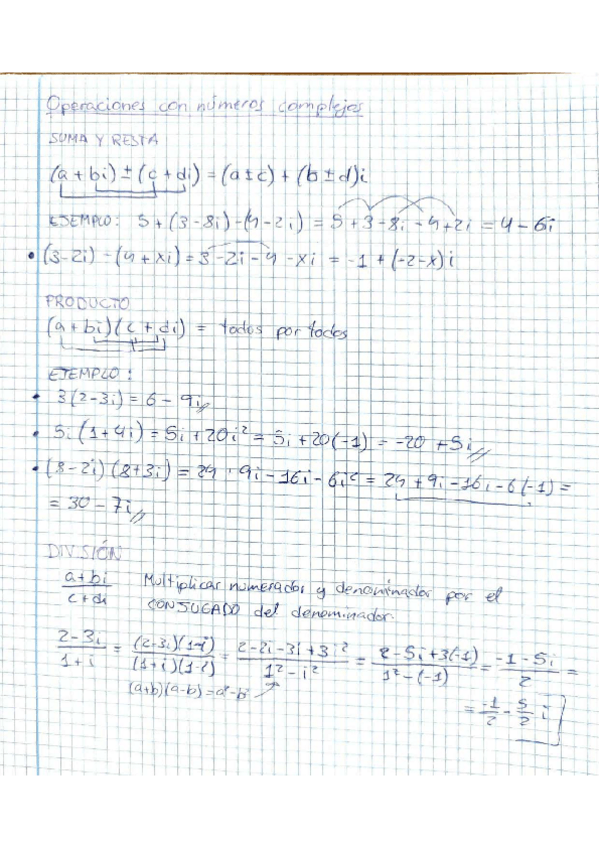 Operaciones con números complejos
SUMA Y RESTA
(a + bi) ± (c + di) = (a ± c) + (b ± d)i
EJEMPLO: 5 + (3 - 8i) - (4 - 2i) = 5 + 3 - 8i - 4 + 2i = 4 - 6i
• (3 - 2i) - (4 + xi) = 3 - 2i - 4 - xi = -1 + (-2 - x)i
PRODUCTO
(a + bi)(c + di) = todos por todos
EJEMPLO:
• 3(2 - 3i) = 6 - 9i
• 5i(1 + 4i) = 5i + 20i² = 5i + 20(-1) = -20 + 5i
• (8 - 2i)(8 + 3i) = 24 + 9i - 16i - 6i² = 24 + 9i - 16i - 6(-1) =
= 30 - 7i
DIVISIÓN
a + bi / c + di Multiplicar numerador y denominador por el
CONJUGADO del denominador.
2 - 3i / 1 + i = (2 - 3i)(1 - i) / (1 + i)(1 - i) = 2 - 2i - 3i + 3i² / 1² - i² = 2 - 5i + 3(-1) / 1² - (-1) = -1 - 5i / 2 =
(a+b)(a-b) = a² - b²
= -1/2 - 5/2 i